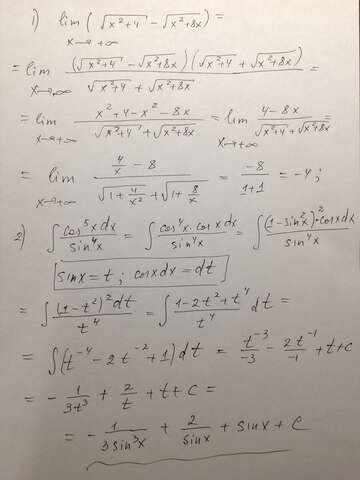 1) lim (√(x²+4) - √(x²+8x)) =
x→+∞
= lim ((√(x²+4) - √(x²+8x))(√(x²+4) + √(x²+8x)))/(√(x²+4) + √(x²+8x)) =
x→∞
= lim (x²+4-x²-8x)/(√(x²+4) + √(x²+8x)) = lim (4-8x)/(√(x²+4) + √(x²+8x)) =
x→+∞ x→+∞
= lim (4/x - 8)/(√(1+4/x²) + √(1+8/x)) = -8/(1+1) = -4;
x→+∞
2) ∫ cos⁵x dx/sin⁴x = ∫ cos⁴x · cosx dx/sin⁴x = ∫ (1-sin²x)² cosx dx/sin⁴x
sinx = t; cosx dx = dt
= ∫ (1-t²)² dt/t⁴ = ∫ (1-2t²+t⁴)/t⁴ dt =
= ∫ (t⁻⁴ - 2t⁻² + 1) dt = t⁻³/-3 - 2t⁻¹/-1 + t + c
= - 1/3t³ + 2/t + t + c =
= - 1/3sin³x + 2/sinx + sinx + c